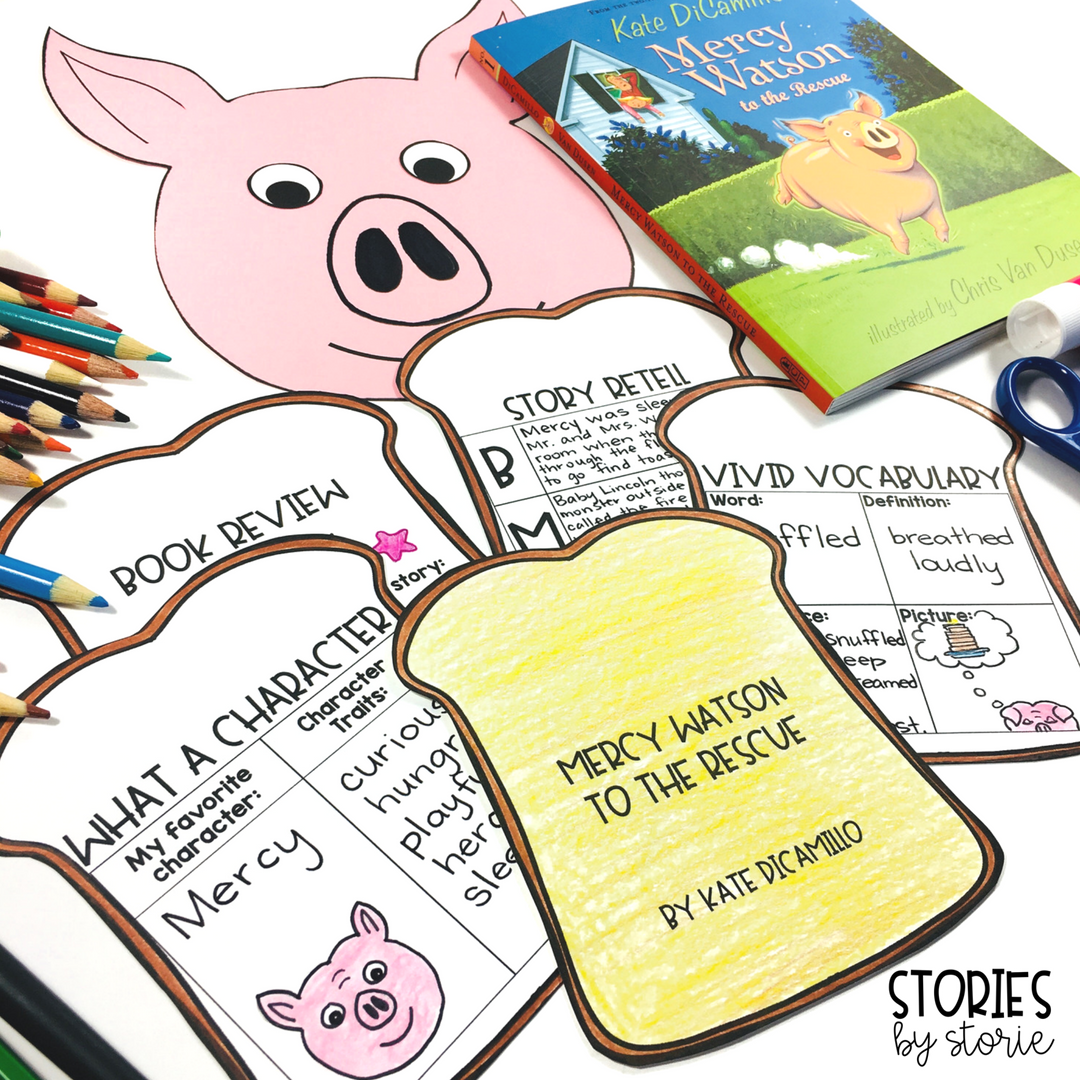 Kate DiCamillo
Mercy
Watson
to the Rescue
illustrated by Chris Van Dusen
DICAMILLO
MERCY WATSON TO THE RESCUE
STORY RETELL
B
Mercy was
Mr. and Mrs.
room when
through the
to go find
M
Baby Lincoln
monster outside
called the fire
VIVID VOCABULARY
Word:
ffled
Definition:
breathed
loudly
snuffled
eep
Picture:
BOOK REVIEW
story:
WHAT A CHARACTER
My favorite
character:
Mercy
Character
Traits:
curious
hungr
playf
her
slee
MERCY WATSON
TO THE RESCUE
BY KATE DICAMILLO
STORIES
by storie